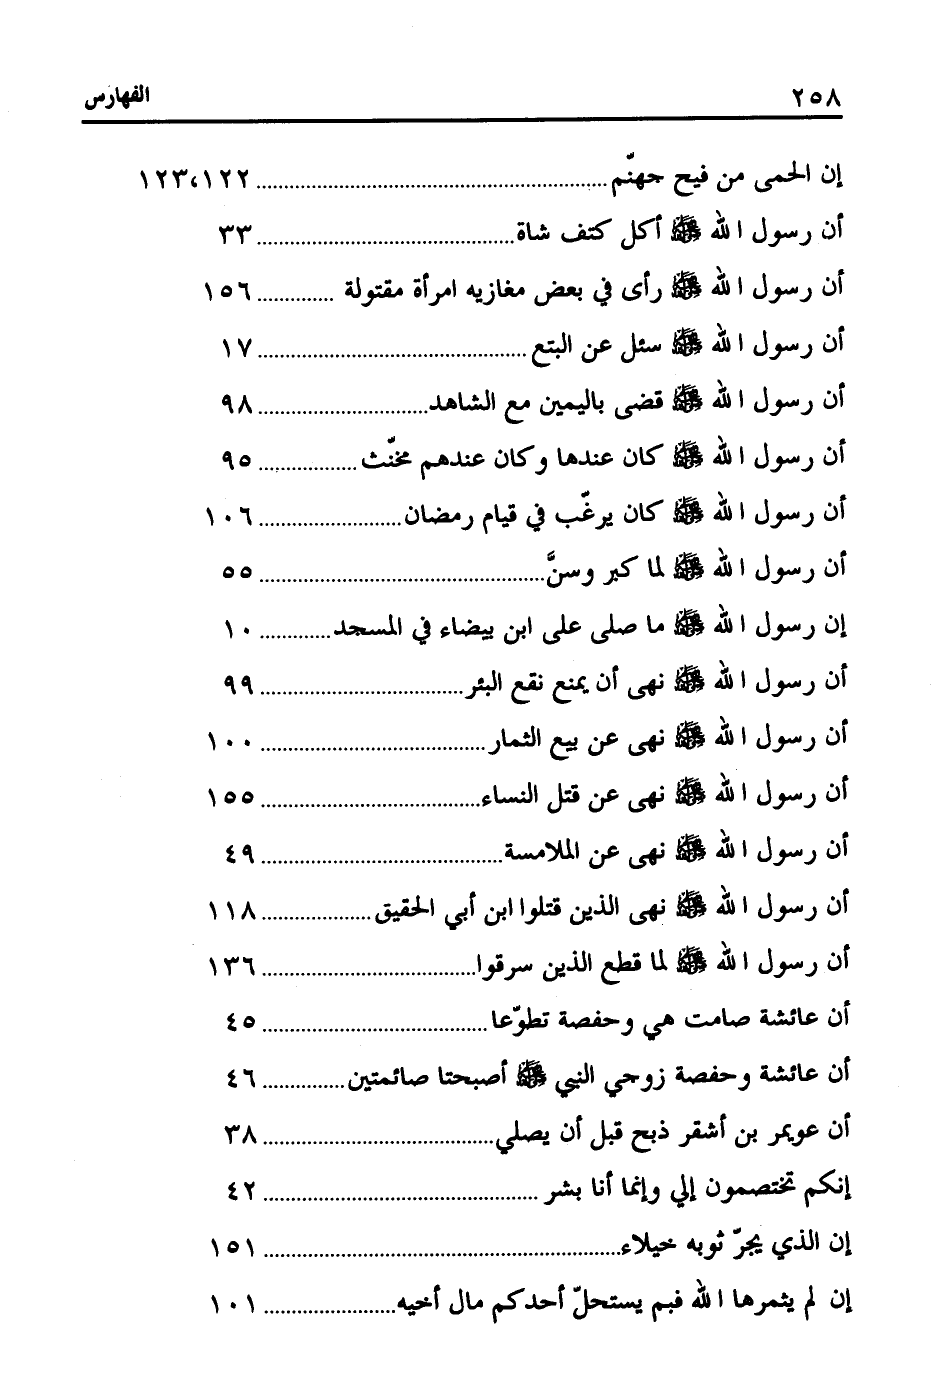 ٢٥٨ الفهارس
إن الحمى من فيح جهنّم ........ ١٢٣،١٢٢
أن رسول الله ﷺ أكل كتف شاة ........ ٣٣
أن رسول الله ﷺ رأى في بعض مغازيه امرأة مقتولة ........ ١٥٦
أن رسول الله ﷺ سئل عن البتع ........ ١٧
أن رسول الله ﷺ قضى باليمين مع الشاهد ........ ٩٨
أن رسول الله ﷺ كان عندها وكان عندهم مخنّث ........ ٩٥
أن رسول الله ﷺ كان يرغّب في قيام رمضان ........ ١٠٦
أن رسول الله ﷺ لما كبر وسنَّ ........ ٥٥
إن رسول الله ﷺ ما صلى على ابن بيضاء في المسجد ........ ١٠
أن رسول الله ﷺ نهى أن يمنع نقع البئر ........ ٩٩
أن رسول الله ﷺ نهى عن بيع الثمار ........ ١٠٠
أن رسول الله ﷺ نهى عن قتل النساء ........ ١٥٥
أن رسول الله ﷺ نهى عن الملامسة ........ ٤٩
أن رسول الله ﷺ نهى الذين قتلوا ابن أبي الحقيق ........ ١١٨
أن رسول الله ﷺ لما قطع الذين سرقوا ........ ١٣٦
أن عائشة صامت هي وحفصة تطوّعا ........ ٤٥
أن عائشة وحفصة زوجي النبي ﷺ أصبحتا صائمتين ........ ٤٦
أن عويمر بن أشقر ذبح قبل أن يصلي ........ ٣٨
إنكم تختصمون إلي وإنما أنا بشر ........ ٤٢
إن الذي يجرّ ثوبه خيلاء ........ ١٥١
إن لم يثمرها الله فبم يستحلّ أحدكم مال أخيه ........ ١٠١